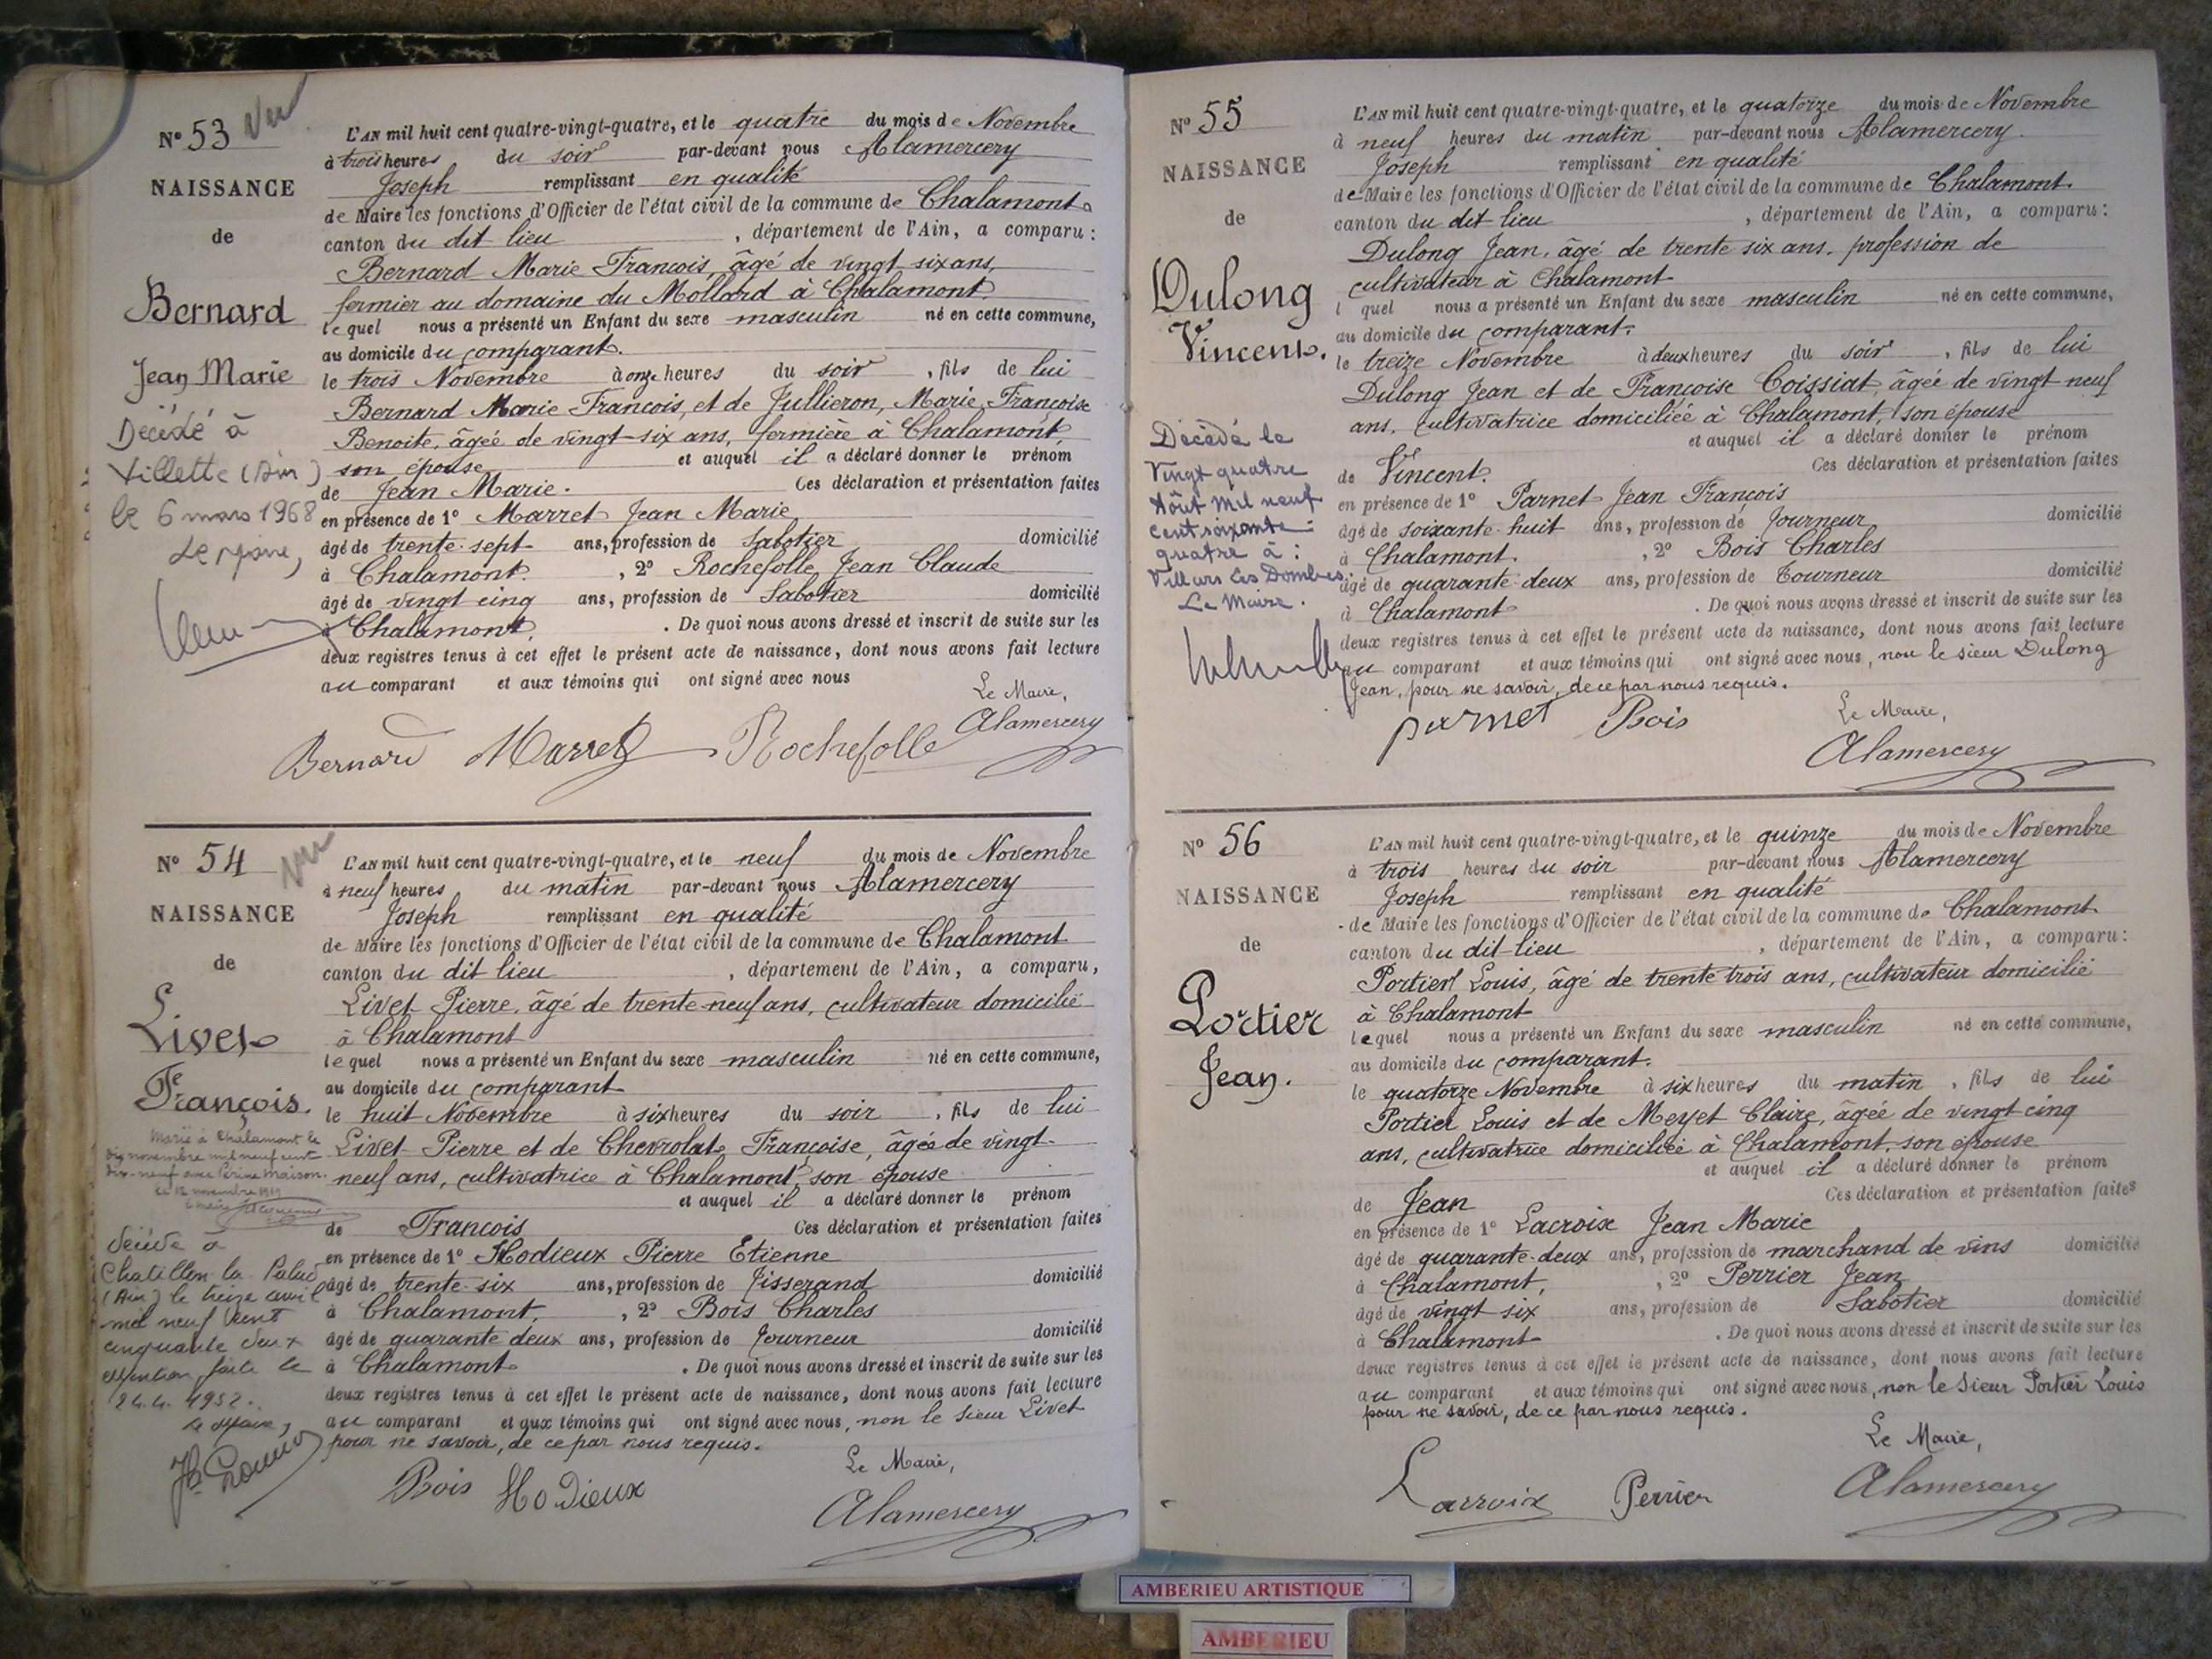 N° 53 Vu
NAISSANCE
de
Bernard
Jean Marie
Décédé à
Villette (Ain)
le 6 mars 1968
Le Maire,
L'AN mil huit cent quatre-vingt-quatre, et le quatre du mois de Novembre
à trois heures du soir par-devant nous Alamercery
Joseph remplissant en qualité
de Maire les fonctions d'Officier de l'état civil de la commune de Chalamont
canton du dit lieu , département de l'Ain, a comparu :
Bernard Marie François, âgé de vingt six ans,
fermier au domaine du Mollard à Chalamont,
lequel nous a présenté un Enfant du sexe masculin né en cette commune,
au domicile du comparant.
le trois Novembre à onze heures du soir , fils de lui
Bernard Marie François, et de Jullieron, Marie Françoise
Benoite, âgée de vingt-six ans, fermière à Chalamont,
son épouse et auquel il a déclaré donner le prénom
de Jean Marie. Ces déclaration et présentation faites
en présence de 1° Marret Jean Marie
âgé de trente-sept ans, profession de Sabotier domicilié
à Chalamont. , 2° Rochefolle Jean Claude
âgé de vingt cinq ans, profession de Sabotier domicilié
à Chalamont. . De quoi nous avons dressé et inscrit de suite sur les
deux registres tenus à cet effet le présent acte de naissance, dont nous avons fait lecture
au comparant et aux témoins qui ont signé avec nous
Le Maire,
Bernard Marret Rochefolle Alamercery
N° 54 Vu
NAISSANCE
de
Livet
François.
Marié à Chalamont le
dix novembre mil neuf cent
dix-neuf avec Périne Maison.
Le 12 novembre 1919
Décédé à
Chatillon la Palud
(Ain) le treize avril
mil neuf cent
cinquante deux
Mention faite le
24.4.1952.
Le Maire,
L'AN mil huit cent quatre-vingt-quatre, et le neuf du mois de Novembre
à neuf heures du matin par-devant nous Alamercery
Joseph remplissant en qualité
de Maire les fonctions d'Officier de l'état civil de la commune de Chalamont
canton du dit lieu , département de l'Ain, a comparu,
Livet Pierre, âgé de trente-neuf ans, cultivateur domicilié
à Chalamont
lequel nous a présenté un Enfant du sexe masculin né en cette commune,
au domicile du comparant
le huit Novembre à six heures du soir , fils de lui
Livet Pierre et de Chevrolat Françoise, âgée de vingt-
neuf ans, cultivatrice à Chalamont, son épouse
et auquel il a déclaré donner le prénom
de François Ces déclaration et présentation faites
en présence de 1° Hodieux Pierre Etienne
âgé de trente-six ans, profession de Tisserand domicilié
à Chalamont, , 2° Bois Charles
âgé de quarante deux ans, profession de Tourneur domicilié
à Chalamont . De quoi nous avons dressé et inscrit de suite sur les
deux registres tenus à cet effet le présent acte de naissance, dont nous avons fait lecture
au comparant et aux témoins qui ont signé avec nous, non le Sieur Livet
pour ne savoir, de ce par nous requis.
Le Maire,
Bois Hodieux Alamercery
N° 55
NAISSANCE
de
Dulong
Vincent.
Décédé le
Vingt quatre
Août Mil neuf
cent soixante-
quatre à :
Villars les Dombes.
Le Maire.
L'AN mil huit cent quatre-vingt-quatre, et le quatorze du mois de Novembre
à neuf heures du matin par-devant nous Alamercery.
Joseph remplissant en qualité
de Maire les fonctions d'Officier de l'état civil de la commune de Chalamont.
canton du dit lieu , département de l'Ain, a comparu :
Dulong Jean, âgé de trente six ans. profession de
cultivateur à Chalamont
l quel nous a présenté un Enfant du sexe masculin né en cette commune,
au domicile du comparant.
le treize Novembre à deux heures du soir , fils de lui
Dulong Jean et de Françoise Coissiat, âgée de vingt neuf
ans, cultivatrice domiciliée à Chalamont, son épouse
et auquel il a déclaré donner le prénom
de Vincent. Ces déclaration et présentation faites
en présence de 1° Parnet Jean François
âgé de soixante-huit ans, profession de Tourneur domicilié
à Chalamont. , 2° Bois Charles
âgé de quarante-deux ans, profession de Tourneur domicilié
à Chalamont . De quoi nous avons dressé et inscrit de suite sur les
deux registres tenus à cet effet le présent acte de naissance, dont nous avons fait lecture
au comparant et aux témoins qui ont signé avec nous, non le sieur Dulong
Jean, pour ne savoir, de ce par nous requis.
Le Maire,
parnet Bois Alamercery
N° 56
NAISSANCE
de
Portier
Jean.
L'AN mil huit cent quatre-vingt-quatre, et le quinze du mois de Novembre
à trois heures du soir par-devant nous Alamercery
Joseph remplissant en qualité
de Maire les fonctions d'Officier de l'état civil de la commune de Chalamont
canton du dit-lieu , département de l'Ain, a comparu :
Portier Louis, âgé de trente trois ans, cultivateur domicilié
à Chalamont
lequel nous a présenté un Enfant du sexe masculin né en cette commune,
au domicile du comparant.
le quatorze Novembre à six heures du matin , fils de lui
Portier Louis et de Meyet Claire, âgée de vingt-cinq
ans, cultivatrice domiciliée à Chalamont, son épouse
et auquel il a déclaré donner le prénom
de Jean Ces déclaration et présentation faites
en présence de 1° Lacroix Jean Marie
âgé de quarante-deux ans, profession de marchand de vins domicilié
à Chalamont, , 2° Perrier Jean
âgé de vingt six ans, profession de Sabotier domicilié
à Chalamont . De quoi nous avons dressé et inscrit de suite sur les
deux registres tenus à cet effet le présent acte de naissance, dont nous avons fait lecture
au comparant et aux témoins qui ont signé avec nous, non le Sieur Portier Louis
pour ne savoir, de ce par nous requis.
Le Maire,
Lacroix Perrier Alamercery
AMBERIEU ARTISTIQUE
AMBERIEU